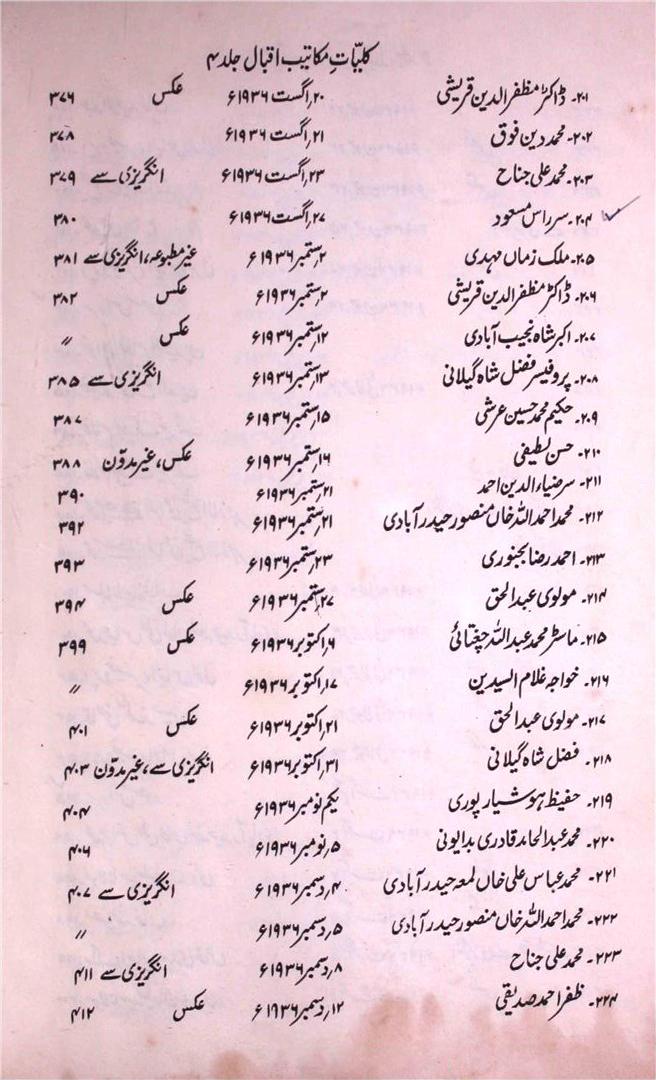 کلیّاتِ مکاتیب اقبال جلد ۴
۲۰۱۔ ڈاکٹر مظفر الدین قریشی ۲۰؍اگست ۱۹۳۶ء عکس ۳۷۶
۲۰۲۔ محمد دین فوق ۲۱؍اگست ۱۹۳۶ء ۳۷۸
۲۰۳۔ محمد علی جناح ۲۳؍اگست ۱۹۳۶ء انگریزی سے ۳۷۹
۲۰۴۔ سر راس مسعود ۲۷؍اگست ۱۹۳۶ء ۳۸۰
۲۰۵۔ ملک زماں مہدی ۲؍ستمبر ۱۹۳۶ء غیر مطبوعہ، انگریزی سے ۳۸۱
۲۰۶۔ ڈاکٹر مظفر الدین قریشی ۲؍ستمبر ۱۹۳۶ء عکس ۳۸۲
۲۰۷۔ اکبر شاہ نجیب آبادی ۱۲؍ستمبر ۱۹۳۶ء عکس 〃
۲۰۸۔ پروفیسر فضل شاہ گیلانی ۱۳؍ستمبر ۱۹۳۶ء انگریزی سے ۳۸۵
۲۰۹۔ حکیم محمد حسین عرشی ۱۵؍ستمبر ۱۹۳۶ء ۳۸۷
۲۱۰۔ حسن لطیفی ۱۶؍ستمبر ۱۹۳۶ء عکس، غیر مدوّن ۳۸۸
۲۱۱۔ سر ضیاء الدین احمد ۲۱؍ستمبر ۱۹۳۶ء ۳۹۰
۲۱۲۔ محمد احمد اللہ خاں منصور حیدر آبادی ۲۱؍ستمبر ۱۹۳۶ء ۳۹۲
۲۱۳۔ احمد رضا بجنوری ۲۳؍ستمبر ۱۹۳۶ء ۳۹۳
۲۱۴۔ مولوی عبد الحق ۲۷؍ستمبر ۱۹۳۶ء عکس ۳۹۴
۲۱۵۔ ماسٹر محمد عبد اللہ چغتائی ۶؍اکتوبر ۱۹۳۶ء عکس ۳۹۹
۲۱۶۔ خواجہ غلام السیدین ۱۷؍اکتوبر ۱۹۳۶ء 〃
۲۱۷۔ مولوی عبد الحق ۲۱؍اکتوبر ۱۹۳۶ء عکس ۴۰۱
۲۱۸۔ فضل شاہ گیلانی ۳۱؍اکتوبر ۱۹۳۶ء انگریزی سے، غیر مدوّن ۴۰۳
۲۱۹۔ حفیظ ہوشیار پوری یکم نومبر ۱۹۳۶ء ۴۰۴
۲۲۰۔ محمد عبد الحامد قادری بدایونی ۵؍نومبر ۱۹۳۶ء ۴۰۶
۲۲۱۔ محمد عباس علی خاں لمعہ حیدر آبادی ۴؍دسمبر ۱۹۳۶ء انگریزی سے ۴۰۷
۲۲۲۔ محمد احمد اللہ خاں منصور حیدر آبادی ۵؍دسمبر ۱۹۳۶ء 〃
۲۲۳۔ محمد علی جناح ۸؍دسمبر ۱۹۳۶ء انگریزی سے ۴۱۱
۲۲۴۔ ظفر احمد صدیقی ۱۲؍دسمبر ۱۹۳۶ء عکس ۴۱۲